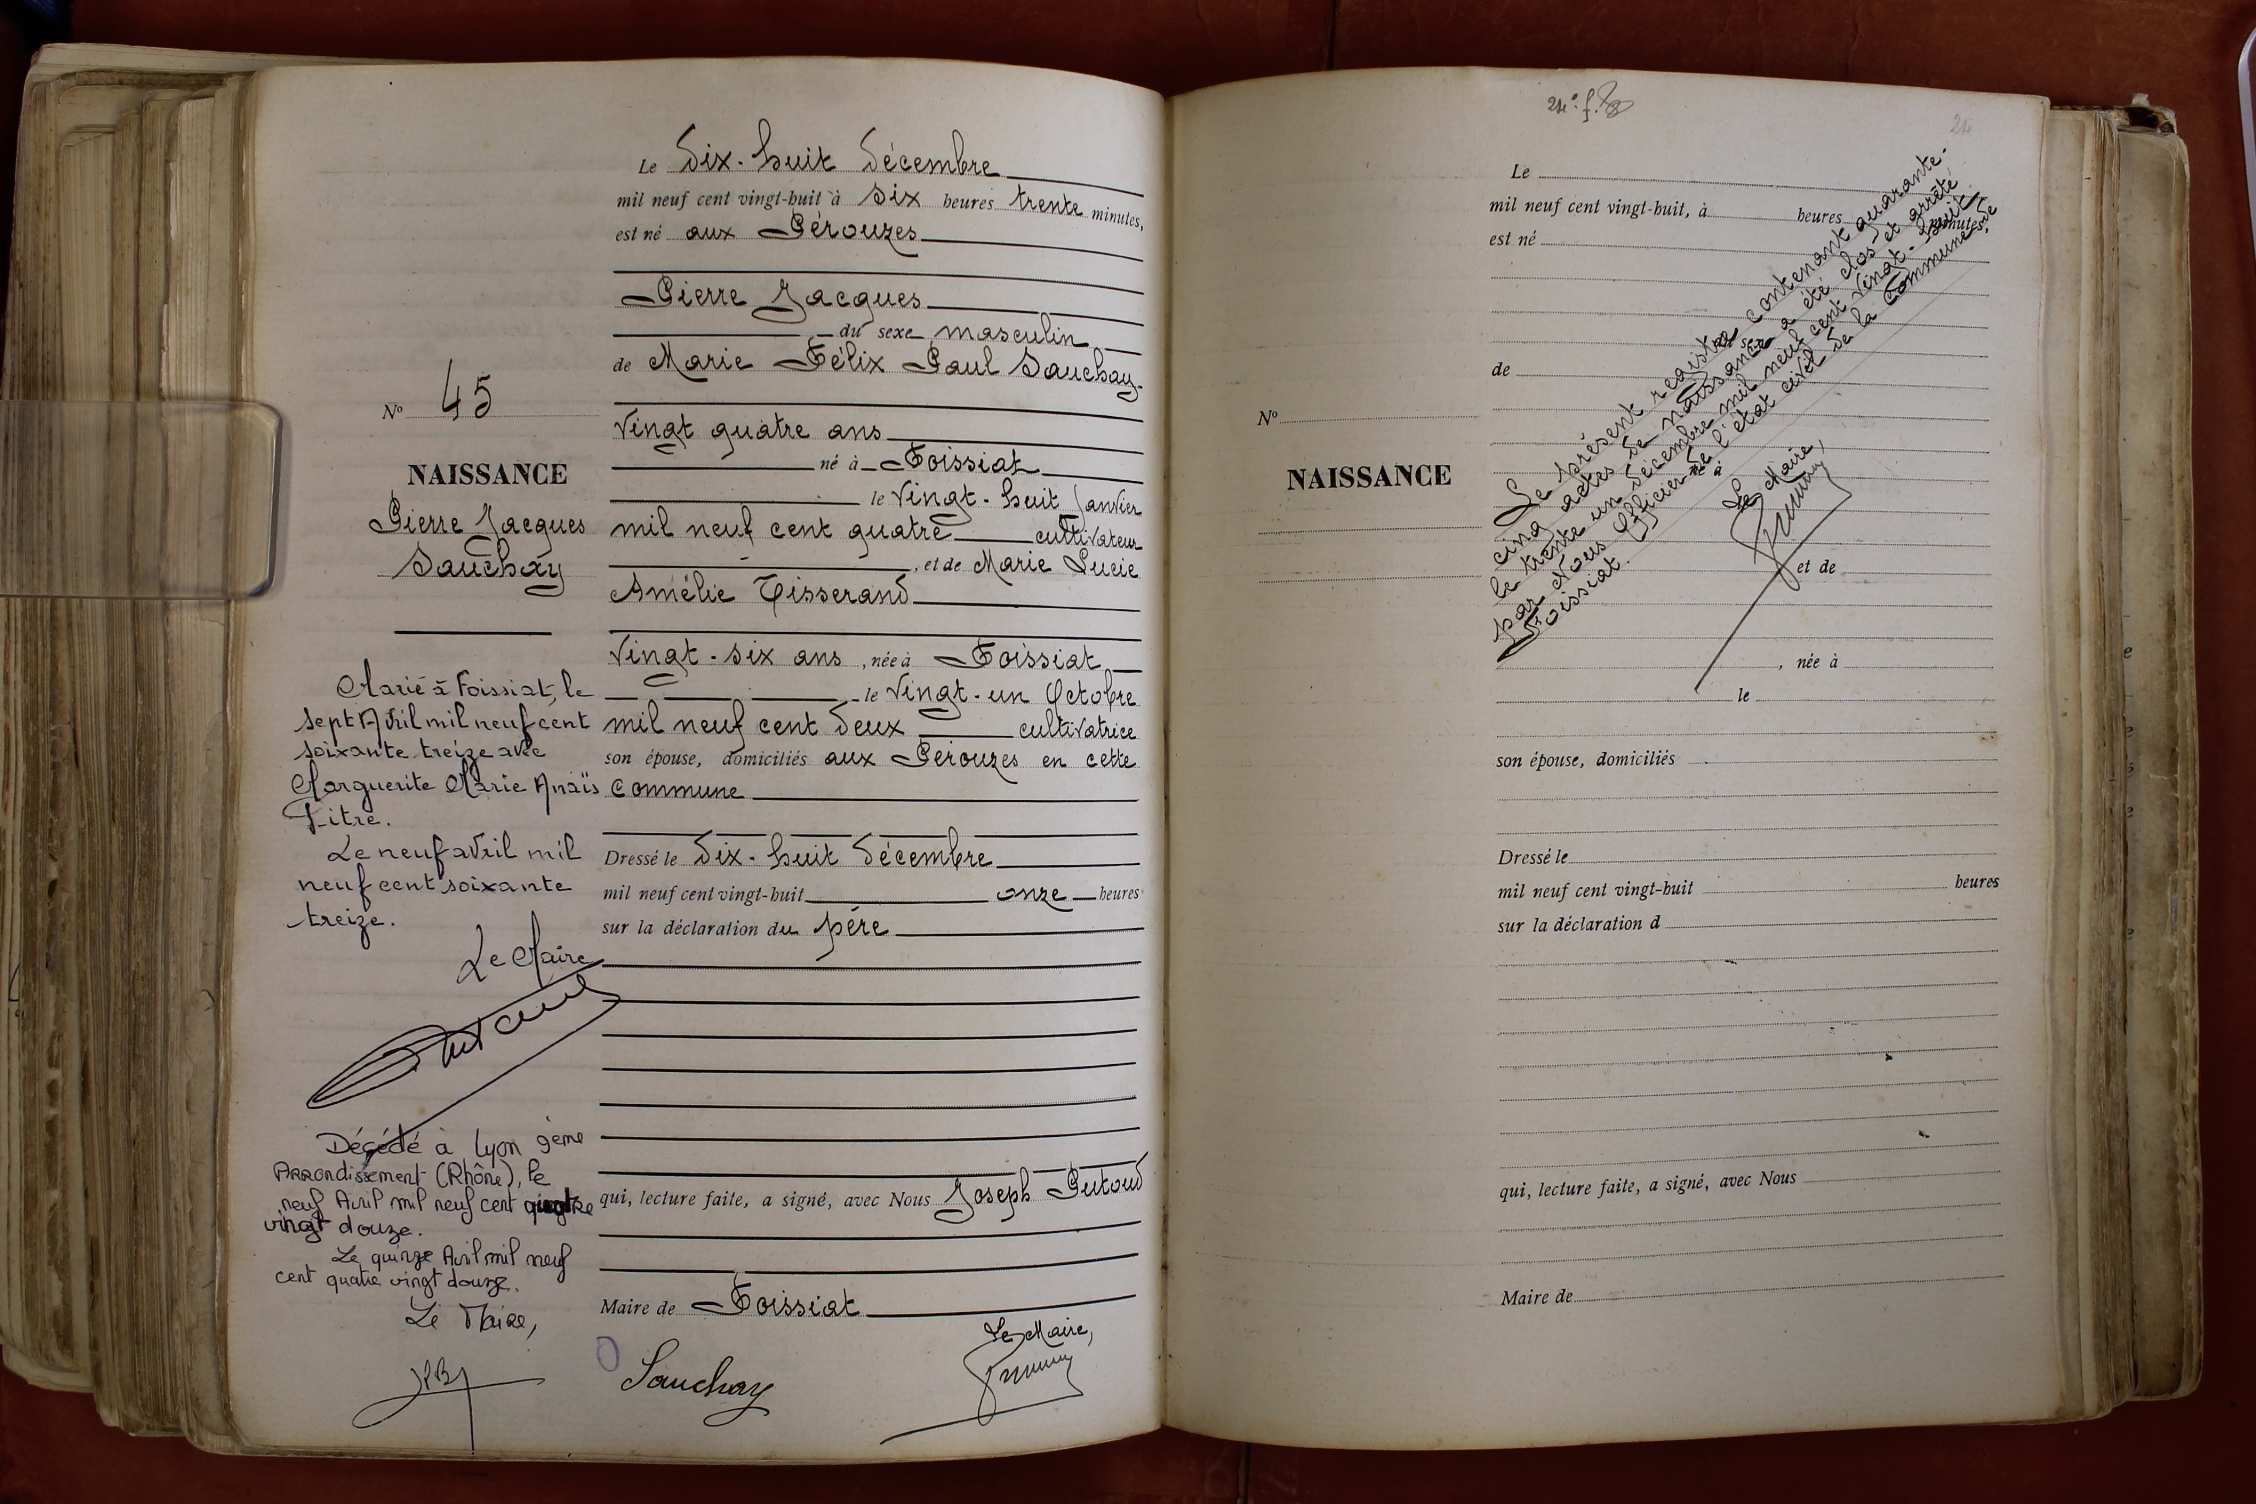 Le Dix-huit Décembre
mil neuf cent vingt-huit à six heures trente minutes,
est né aux Pérouzes
Pierre Jacques
du sexe masculin
de Marie Félix Paul Sauchay
N° 45
Vingt quatre ans
né à Foissiat
NAISSANCE
le Vingt-huit Janvier
Pierre Jacques
Sauchay
mil neuf cent quatre cultivateur
, et de Marie Lucie
Amélie Tisserand
Vingt-six ans , née à Foissiat
le Vingt-un Octobre
mil neuf cent deux cultivatrice
son épouse, domiciliés aux Pérouzes en cette
commune
Dressé le Dix-huit Décembre
mil neuf cent vingt-huit onze heures
sur la déclaration du père
qui, lecture faite, a signé, avec Nous Joseph Putoud
Maire de Foissiat
Le Maire,
Sauchay
Marié à Foissiat, le
sept Avril mil neuf cent
soixante treize avec
Marguerite Marie Anaïs
Pitre.
Le neuf avril mil
neuf cent soixante
treize.
Le Maire
Décédé à Lyon 9ème
Arrondissement (Rhône), le
neuf Avril mil neuf cent quatre
vingt douze.
Le quinze Avril mil neuf
cent quatre vingt douze.
Le Maire,
24
Le
mil neuf cent vingt-huit, à heures minutes,
est né
du sexe
de
N°
NAISSANCE
né à
et de
, née à
le
son épouse, domiciliés
Dressé le
mil neuf cent vingt-huit heures
sur la déclaration d
qui, lecture faite, a signé, avec Nous
Maire de
Le présent registre contenant quarante-
cinq actes de naissance a été clos et arrêté
le trente un Décembre mil neuf cent Vingt-huit
par Nous Officier de l'état civil de la Commune de
Foissiat.
Le Maire,